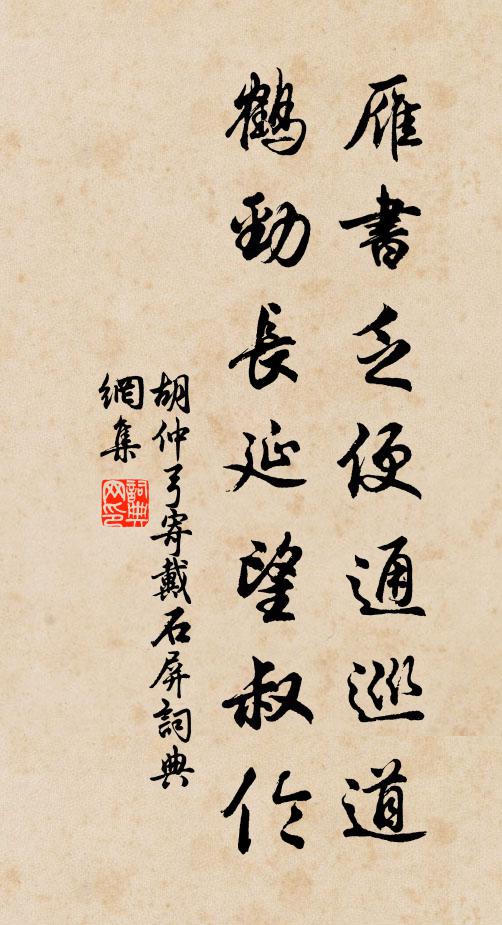 雁書乏便通巡道
鶴勁長延望叔伦
胡仲弓寄戴石屏詞典
網集
詞典网印